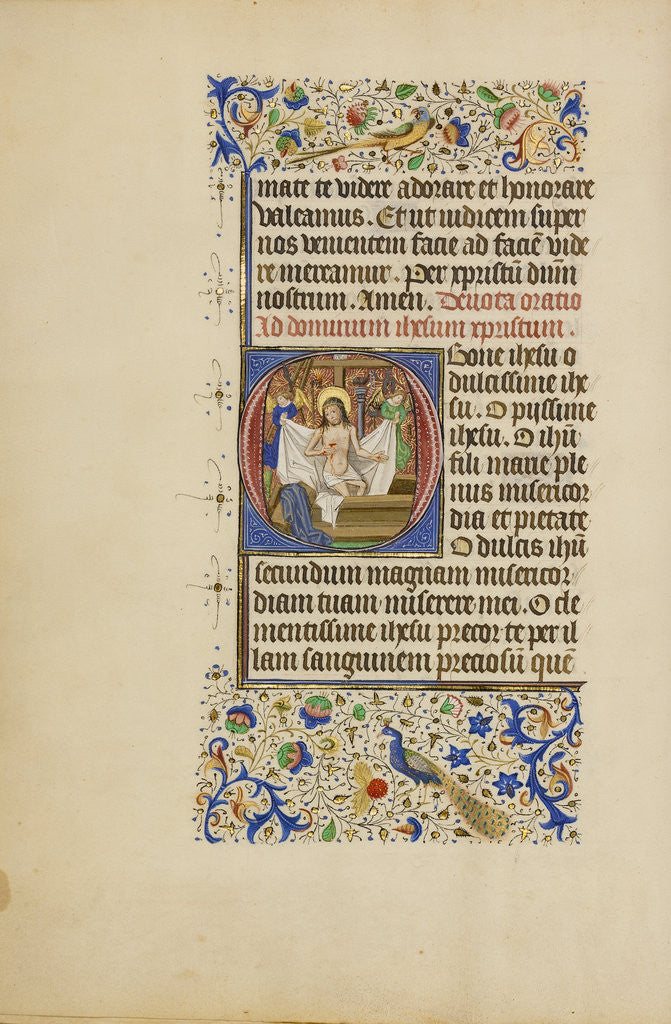 mate te videre adorare et honorare
valeamus. Et ut iudicem super
nos venientem facie ad faciē vide
re mereamur. Per xpristū dum̄
nostrum. Amen. Devota oratio
Ad dominum ihesum xpristum.
O Bone ihesu o
dulcissime ihe
su. O pyssime
ihesu. O ihū
fili marie ple
nus misericor
dia et pietate
O dulcis ihū
secundum magnam misericor
diam tuam miserere mei. O cle
mentissime ihesu precor te per il
lam sanguinem preciosū quē